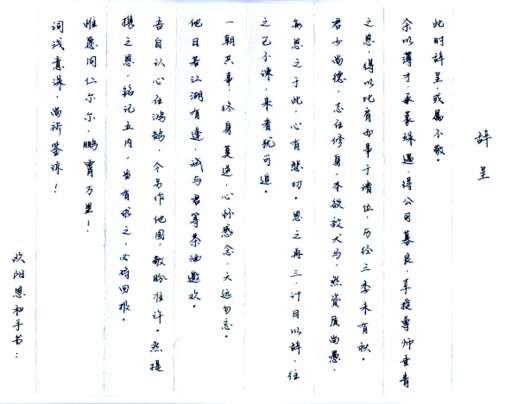 辞呈
此时辞呈,或属不敬。
余以薄才,承蒙殊遇,得公司慕良,羊授尊师垂青
之恩,得以比肩而事于诸位,历经三季未有秋。
君子尚德,志在修身,本欲放犬马,然资质尚愚,
每思之于此,心有悲切。思之再三,计日以辞,往
之已不谏,来者犹可追。
一朝共事,终身莫逆,心怀感念,天远勿忘。
他日若江湖有逢,诚与君等茶酒邀欢。
吾自认心在鸿鹄,今另作他图,敬盼准许。然提
携之恩,铭记五内,当有求之,必将回报。
惟愿同仁尔尔,鹏霄万里!
词浅意深,尚祈鉴谅!
欧阳恩和手书: